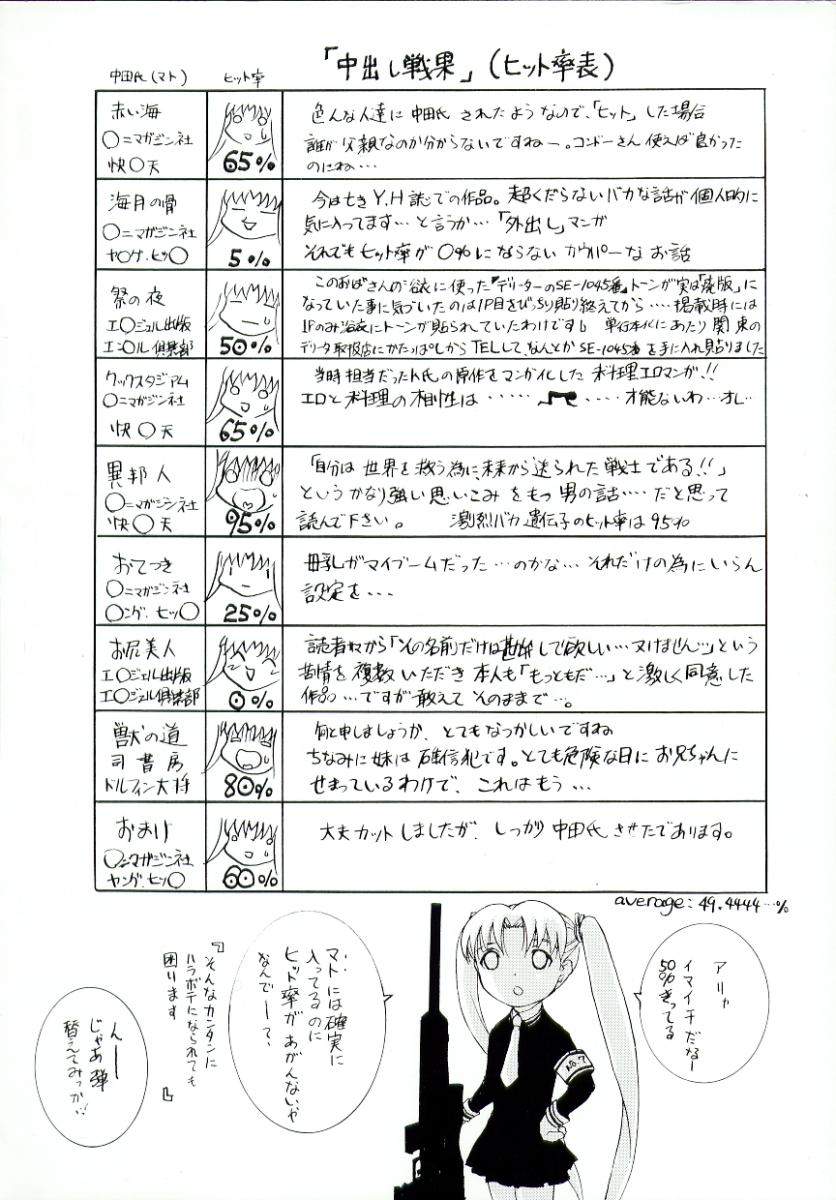 「中出し戦果」(ヒット率表)
中田氏(マト)
ヒット率
赤い海
〇ニマガジン社
快〇天
65%
色んな人達に中田氏されたようなので、「ヒット」した場合
誰が父親なのか分からないですねー。コンドーさん使えば良かった
のにね…
海月の骨
〇ニマガジン社
ヤ〇ク.ヒッ〇
5%
今は亡きY.H誌での作品。超くだらないバカな話が個人的に
気に入ってます…と言うか…「外出し」マンガ
それでもヒット率が0%にならないカウパーなお話
祭の夜
エ〇ジェル出版
エン〇ル倶楽部
50%
このおばさんの浴衣に使った『デリーターのSE-1045番』トーンが実は「廃版」に
なっていた事に気づいたのは1P目をびっちり貼り終えてから……掲載時には
1Pのみ浴衣にトーンが貼られていたわけです。単行本化にあたり関東の
デリータ取扱店にかたっぱしからTELして、なんとかSE-1045番を手に入れ貼りました
クックスタジアム
〇ニマガジン社
快〇天
65%
当時担当だったト氏の原作をマンガ化した料理エロマンガ!!
エロと料理の相性は…… ……才能ないわ…オレ…
異邦人
〇ニマガジン社
快〇天
95%
「自分は世界を救う為に、未来から送られた戦士である!!」
というかなり強い思いこみをもつ男の話……だと思って
読んで下さい。 激烈バカ遺伝子のヒット率は95%
おてつき
〇ニマガジン社
〇ング.ヒッ〇
25%
母乳がマイブームだった…のかな…それだけの為にいらん
設定を…
お尻美人
エ〇ジェル出版
エ〇ジェル倶楽部
0%
読者様から「その名前だけは勘弁して欲しい…ヌけません…」という
苦情を複数いただき本人も「もっともだ…」と激しく同意した
作品…ですが敢えてそのままで…。
獣の道
司書房
ドルフィン大将
80%
何と申しましょうか、とてもなつかしいですね
ちなみに妹は確信犯です。とても危険な日にお兄ちゃんに
せまっているわけで、これはもう…
おまけ
〇ニマガジン社
ヤング.ヒッ〇
60%
大丈カットしましたが、しっかり中田氏させたであります。
average: 49.4444…%
アリャ
イマイチだなー
50%きってる
…マトには確実に
入ってるのに
ヒット率が
あがんないや
なんでーて、
『そんなカンタンに
ハラボテになられても
困ります』
んー
じゃあ弾
替えてみっか…